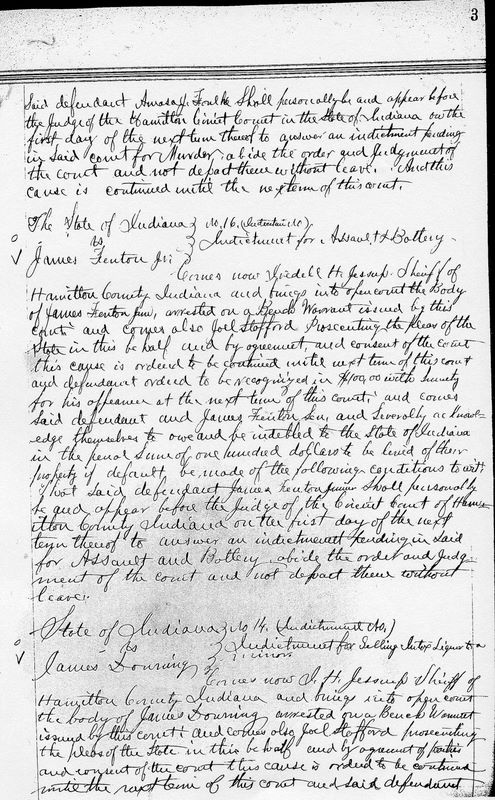 3
Said defendant Amasa J. Foulke Shall personally be and appear before
the Judge of the Hamilton Circuit Court in the State of Indiana on the
first day of the next term thereof to answer an indictment pending
in said court for Murder, abide the order and Judgment of
the court and not depart there without leave. And this
cause is continued until the next term of this court.
The State of Indiana } No. 16. (Indictment No)
vs } Indictment for Assault & Battery.
James Fenton Jr. }
Comes now H. Jessup Sheriff of
Hamilton County Indiana and brings into open court the Body
of James Fenton Jun, arrested on a Bench Warrant issued by this
court and comes also Joel Stafford Prosecuting the pleas of the
State in this behalf and by agreement, and consent of the court
this cause is ordered to be continued until next term of this court
and defendant ordered to be recognized in $100,00 with surety
for his at the next term of this court; and comes
said defendant and James Fenton Sen, and Severally acknowl-
edge themselves to owe and be indebted to the State of Indiana
in the penal Sum of one hundred dollars to be levied of their
property if default, be made of the following conditions to wit:
if said defendant James Fenton Junior Shall personally
be and appear before the Judge of the Circuit Court of Hamil-
ton County Indiana on the first day of the next
term thereof to answer an indictment pending in said
for Assault and Battery abide the order and Judg-
ment of the court and not depart there without
leave.
State of Indiana } No 14. (Indictment No,)
vs } Indictment for Selling Intox Liquor to a
James Downing } minor
Comes now I. H. Jessup Sheriff of
Hamilton County Indiana and brings into open court
the body of James Downing arrested on a Bench Warrant
issued by this court and comes also Joel Stafford prosecuting
the pleas of the State in this behalf and by agreement of parties
and consent of the court this cause is ordered to be continued
until the next term of this court and said defendant